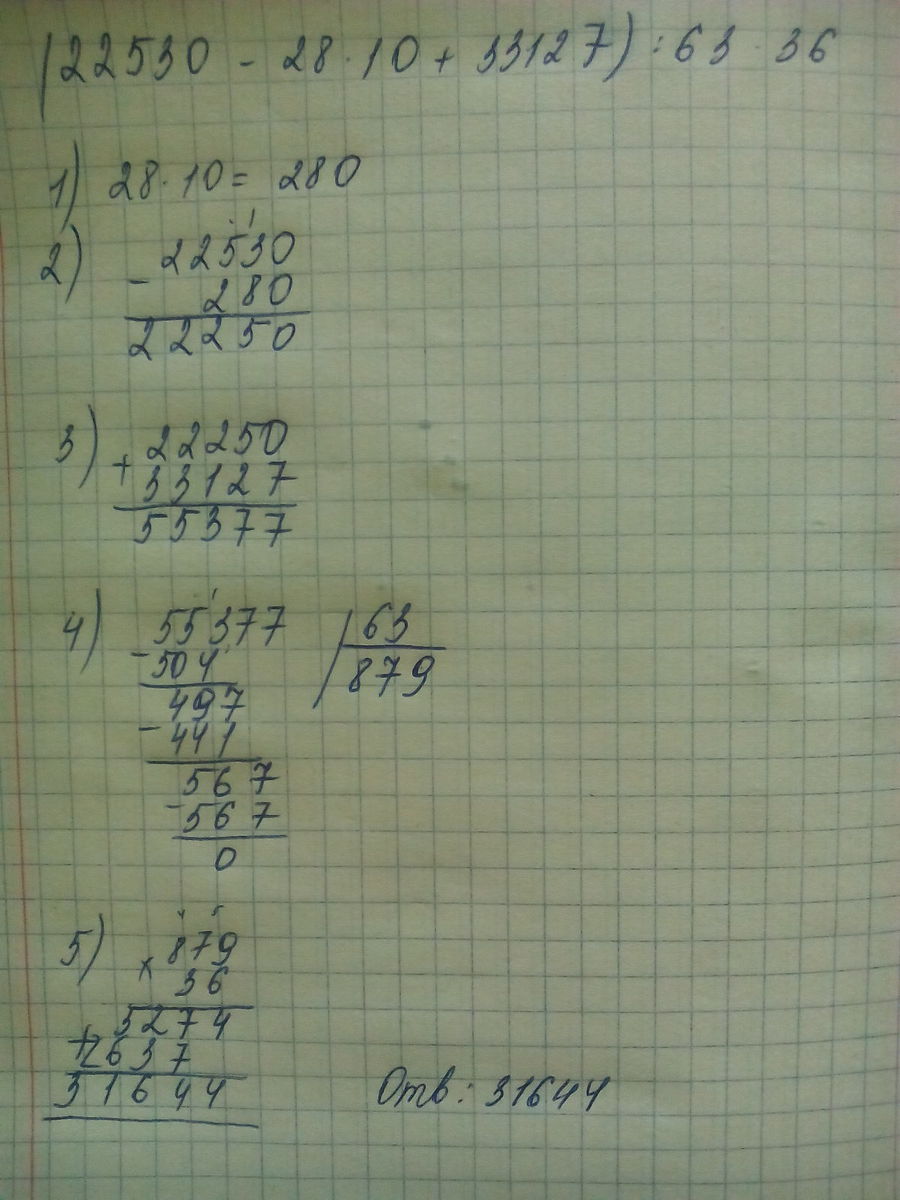 (22530 - 28·10 + 33127) : 63 · 36
1) 28·10 = 280
2) 22530
- 280
22250
3) 22250
+ 33127
55377
4) 55377 | 63
- 504 879
497
- 441
567
- 567
0
5) 879
× 36
5274
+ 2637
31644
Отв: 31644